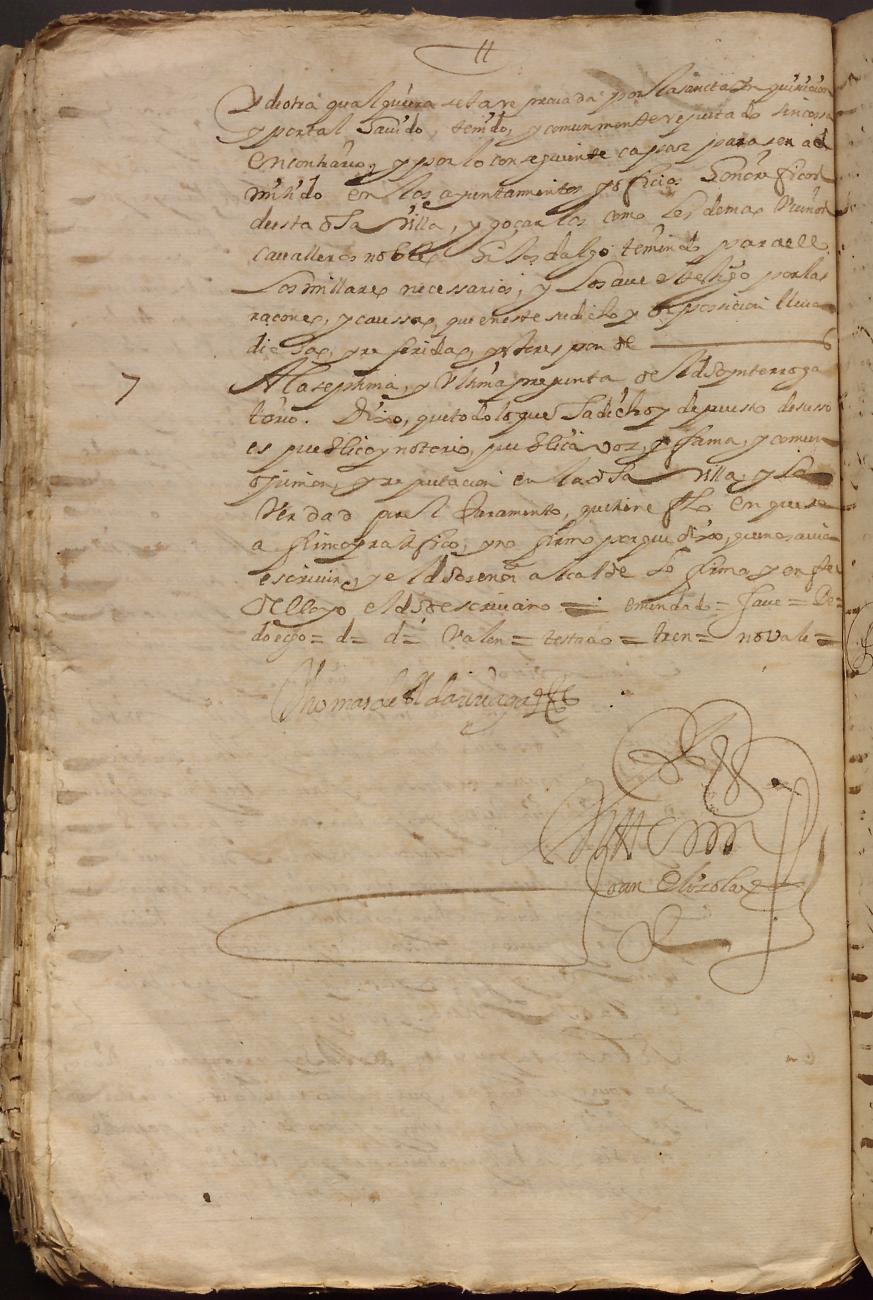 y de otra qualquiera seta re provada por la sancta Ynquisicion
y por tal havido, tenido, y comunmente reputado sin cossa
en contrario, y por lo consiguiente capaz para ser ad
mitido en los ayuntamientos y oficios honorificos
de esta dha Villa, y goçar los como los demas
cavalleros nobles hijos dalgo teniendo para ello
los millares necessarios, y lo save el testigo por las
raçones, y caussas, que en este su dicho y deposicion lleva
dichas, y re feridas, y esto responde
7 A la septima, y Ultima pregunta del dho ynterroga
torio. Dixo, que todo lo que ha dicho y depuesto de suso
es publico y notorio, publica voz, y fama, y comun
opinion, y re putacion en la dha Villa, y la
Verdad para el Juramento, que tiene fho en que se
a firmo y ratifico, y no firmo porque dixo, que no savia
escrivir, y el dho señor alcalde lo firmo, y en fee
de ello yo el dho escrivano = emendado = save =
do ego = d = d = Valen = testado = tren = no vale =
Thomas de
Ante mi
Joan Elizalde